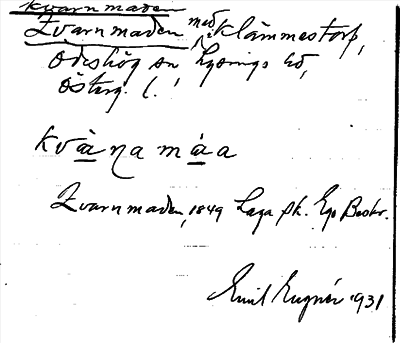 Kvarnmaden
Qvarnmaden med Klämmestorp,
Ödeshög sn Lysings hd,
Österg. l.
kvàṇa màa
Qvarnmaden, 1849 Laga sk. Ego Beskr.
Emil Eugnér 1931